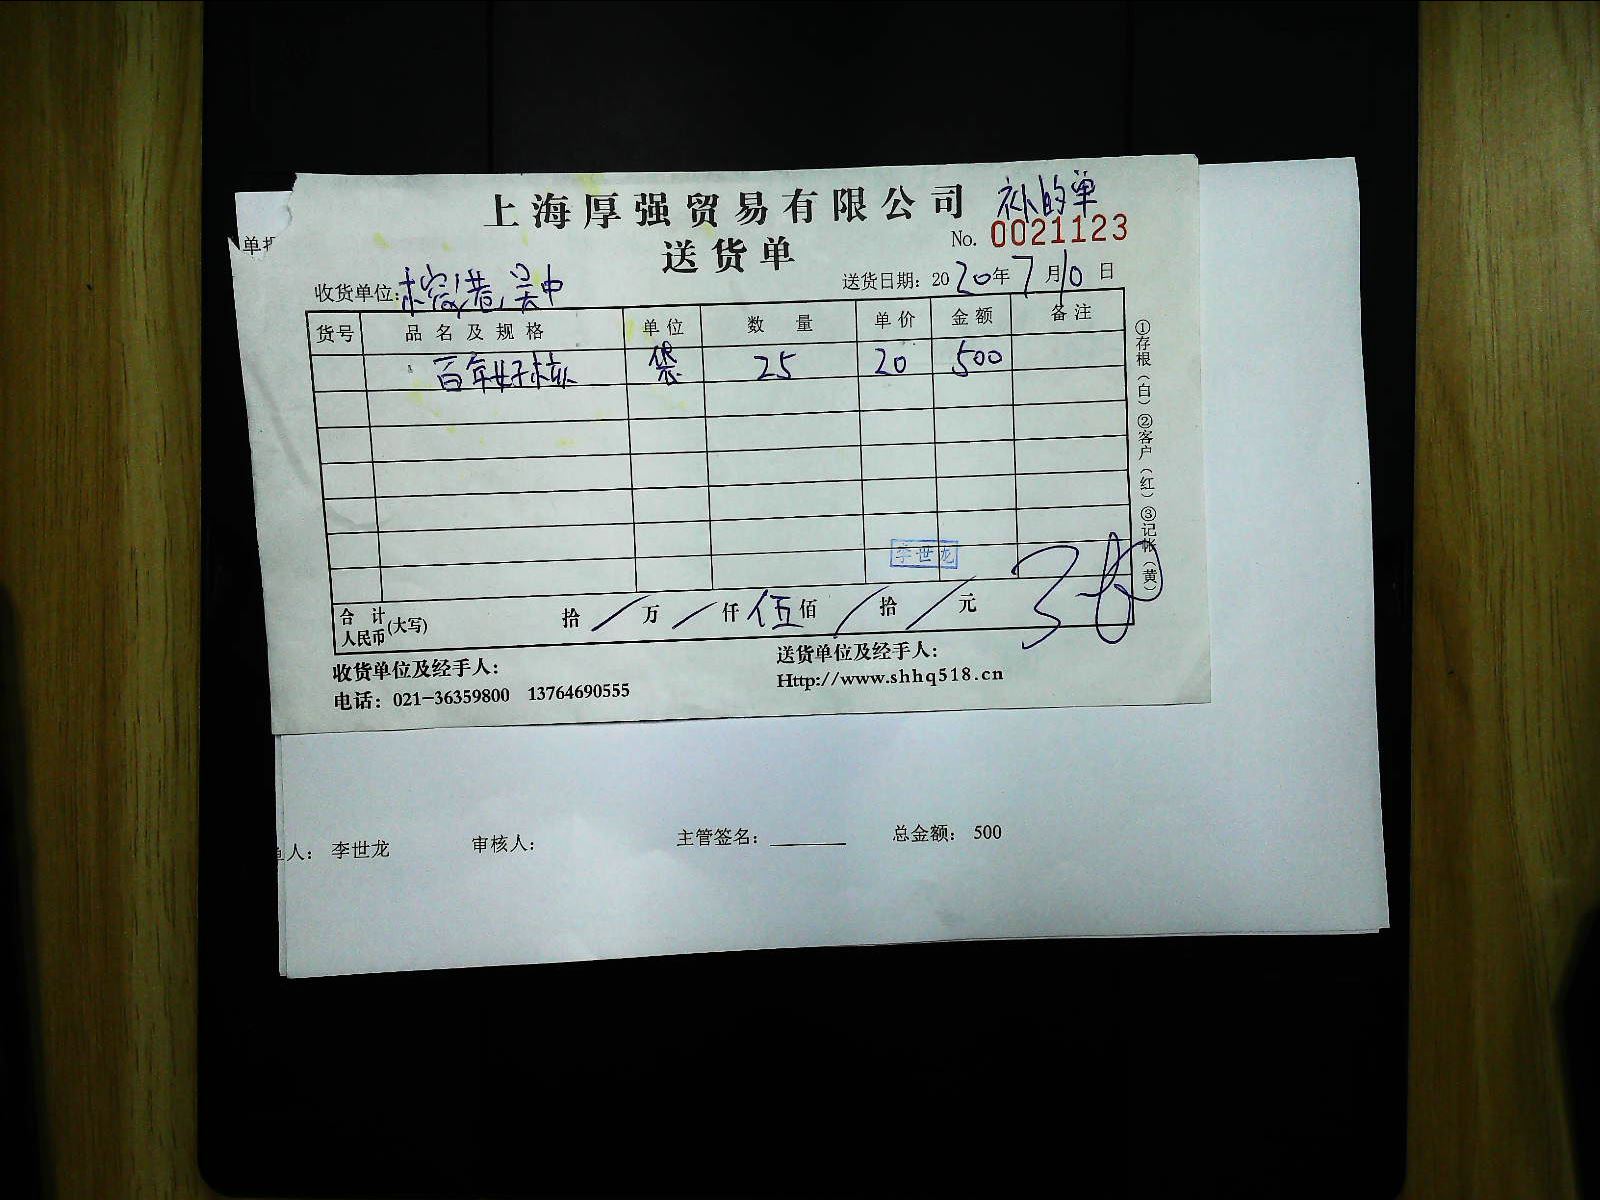 上海厚强贸易有限公司
补的单
送货单
No. 0021123
单
收货单位: 吴中
送货日期: 2020年7月10日
货号 品名及规格 单位 数量 单价 金额 备注
百年好 袋 25 20 500
李世龙
合计人民币(大写) 拾 / 万 / 仟 伍 佰 / 拾 / 元
①存根(白) ②客户(红) ③记帐(黄)
收货单位及经手人:
送货单位及经手人:
电话: 021-36359800 13764690555
Http://www.shhq518.cn
人: 李世龙 审核人: 主管签名: 总金额: 500